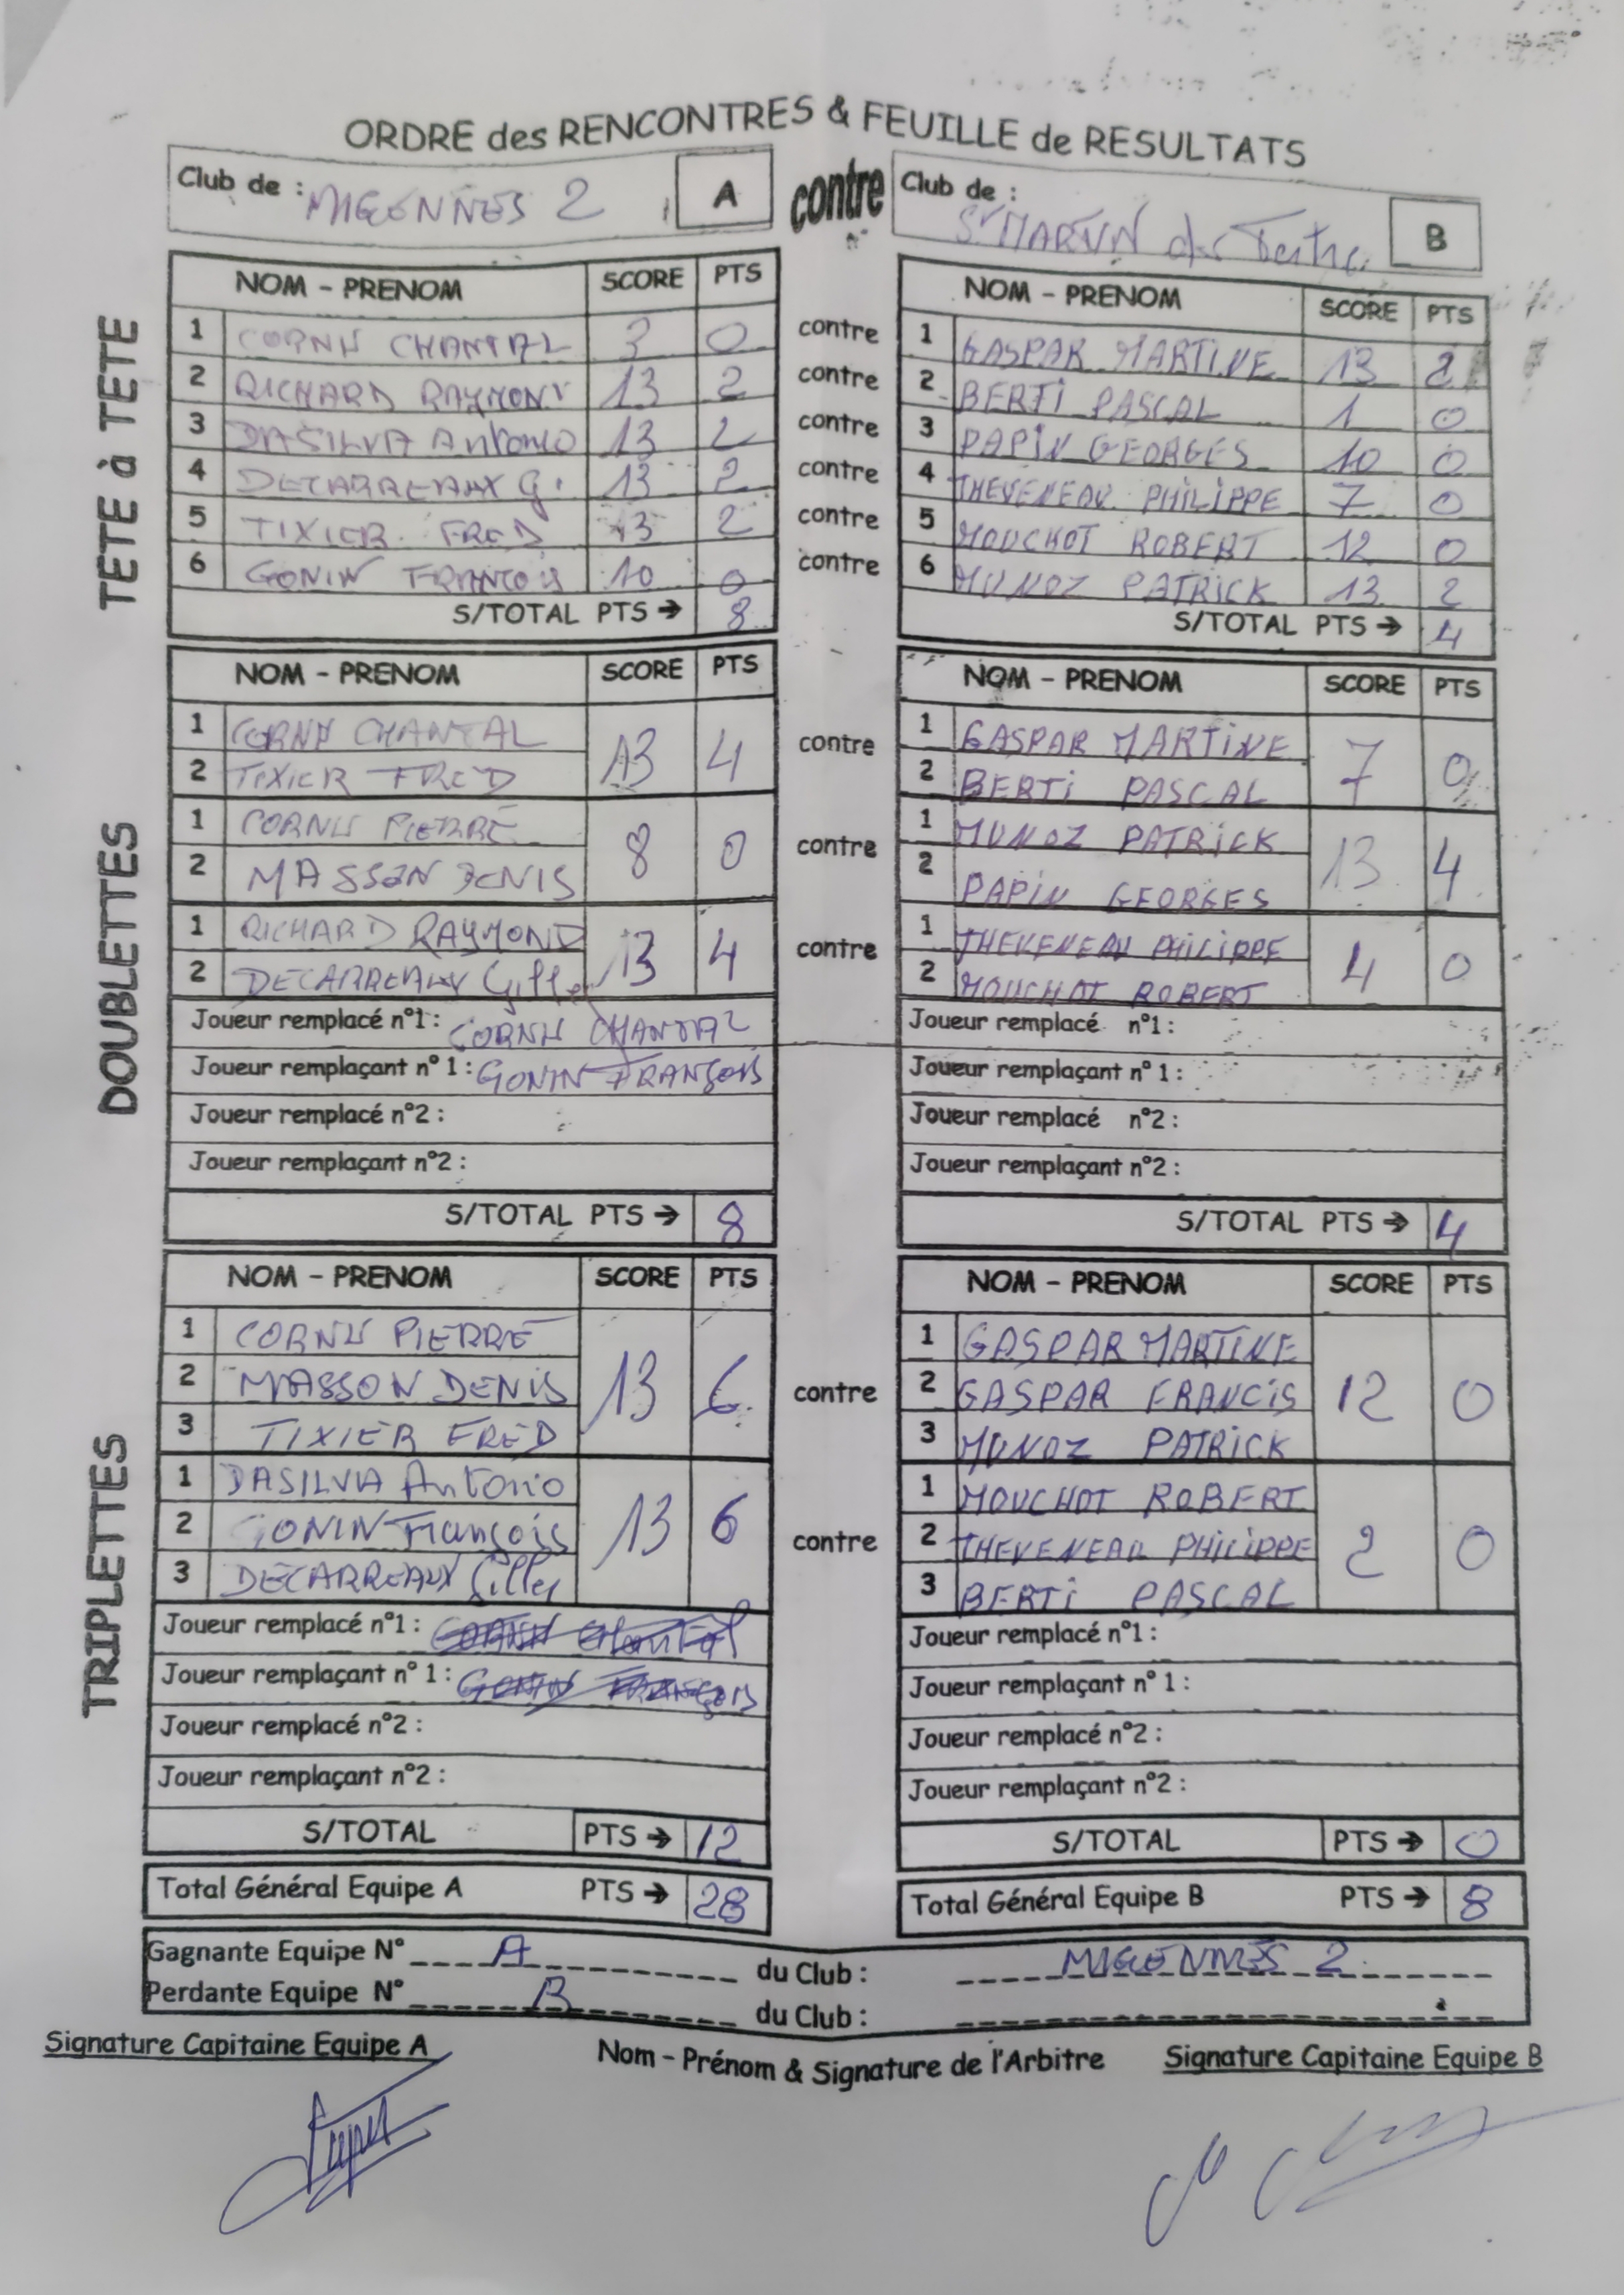 ORDRE des RENCONTRES & FEUILLE de RESULTATS
Club de : MIGENNES 2 A contre Club de : St MARTIN du Tertre B
TETE à TETE
NOM - PRENOM SCORE PTS NOM - PRENOM SCORE PTS
1 CORNU CHANTAL 3 0 contre 1 GASPAR MARTINE 13 2
2 RICHARD RAYMOND 13 2 contre 2 BERTI PASCAL 1 0
3 DASILVA Antonio 13 2 contre 3 PAPIN GEORGES 10 0
4 DECARREAUX G. 13 2 contre 4 THEVENEAU PHILIPPE 7 0
5 TIXIER FRED 13 2 contre 5 MOUCHOT ROBERT 12 0
6 GONIN FRANCOIS 10 0 contre 6 MUNOZ PATRICK 13 2
S/TOTAL PTS → 8 S/TOTAL PTS → 4
DOUBLETTES
NOM - PRENOM SCORE PTS NOM - PRENOM SCORE PTS
1 CORNU CHANTAL 13 4 contre 1 GASPAR MARTINE 7 0
2 TIXIER FRED 2 BERTI PASCAL
1 CORNU PIERRE 8 0 contre 1 MUNOZ PATRICK 13 4
2 MASSON DENIS 2 PAPIN GEORGES
1 RICHARD RAYMOND 13 4 contre 1 THEVENEAU PHILIPPE 4 0
2 DECARREAUX Gilles 2 MOUCHOT ROBERT
Joueur remplacé n°1 : CORNU CHANTAL Joueur remplacé n°1 :
Joueur remplaçant n° 1 : GONIN FRANÇOIS Joueur remplaçant n° 1 :
Joueur remplacé n°2 : Joueur remplacé n°2 :
Joueur remplaçant n°2 : Joueur remplaçant n°2 :
S/TOTAL PTS → 8 S/TOTAL PTS → 4
TRIPLETTES
NOM - PRENOM SCORE PTS NOM - PRENOM SCORE PTS
1 CORNU PIERRE 13 6 contre 1 GASPAR MARTINE 12 0
2 MASSON DENIS 2 GASPAR FRANCIS
3 TIXIER FRED 3 MUNOZ PATRICK
1 DASILVA Antonio 13 6 contre 1 MOUCHOT ROBERT 2 0
2 GONIN François 2 THEVENEAU PHILIPPE
3 DECARREAUX Gilles 3 BERTI PASCAL
Joueur remplacé n°1 : CORNU Chantal Joueur remplacé n°1 :
Joueur remplaçant n° 1 : GONIN FRANÇOIS Joueur remplaçant n° 1 :
Joueur remplacé n°2 : Joueur remplacé n°2 :
Joueur remplaçant n°2 : Joueur remplaçant n°2 :
S/TOTAL PTS → 12 S/TOTAL PTS → 0
Total Général Equipe A PTS → 28 Total Général Equipe B PTS → 8
Gagnante Equipe N° A du Club : MIGENNES 2
Perdante Equipe N° B du Club :
Signature Capitaine Equipe A Nom - Prénom & Signature de l'Arbitre Signature Capitaine Equipe B